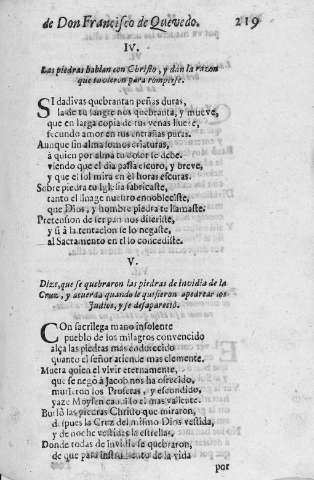 de Don Francisco de Quevedo. 219
IV.
Las piedras hablan con Christo, y dàn la razon
que tuvieron para romperse.
SI dadivas quebrantan peñas duras,
la de tu sangre nos quebranta, y mueve,
que en larga copia de tus venas llueve,
fecundo amor en tus entrañas puras.
Aunque sin alma somos criaturas,
à quien por alma tu dolor se debe.
viendo que el dia passa escuro, y breve,
y que el sol mira en èl horas escuras.
Sobre piedra tu Iglesia fabricaste,
tanto el linage nuestro ennobleciste,
que Dios, y hombre piedra te llamaste.
Pretension de ser pan nos diferiste,
y si à la tentacion se lo negaste,
al Sacramento en ti lo concediste.
V.
Dize, que se quebraron las piedras de invidia de la
Cruz, y acuerda quando le quisieron apedrear los
Judios, y se desapareciò.
COn sacrilega mano insolente
pueblo de los milagros convencido
alça las piedras mas endurecido
quanto el señor atiende mas clemente.
Muera quien el vivir eternamente,
que se negò à Jacob nos ha ofrecido,
murieron los Profetas, y escondido,
yaze Moysen caudillo el mas valiente.
Burlò las piedras Christo que miraron,
despues la Cruz del mismo Dios vestida,
y de noche vestidas las estrellas.
Donde todas de invidia se quebraron,
de que para instrumento de la vida
por